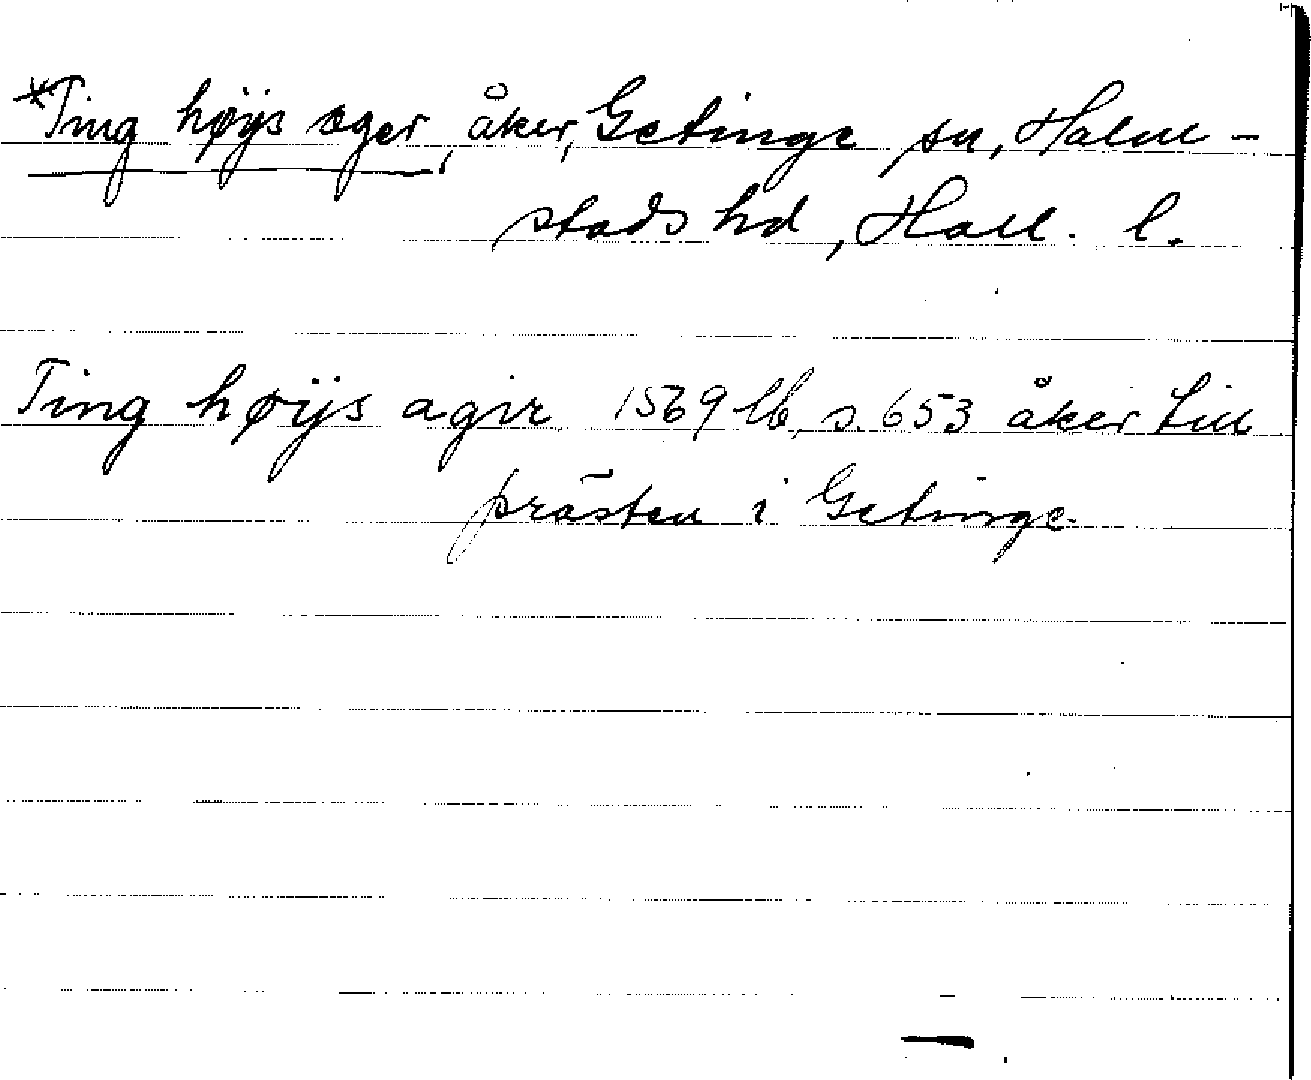 *Ting høijs ager, åker, Getinge sn, Halm-
stads hd, Hall. l.
Ting høijs agir 1569 lb, s. 653 åker till
prästen i Getinge.